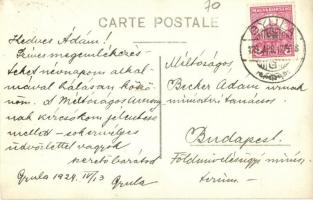 70
CARTE POSTALE
MAGYARORSZÁG
GYULA
Kedves Ádám!
Szíves megemlékezés-
teket névnapom alkal-
mával hálásan köszö-
nöm. A Méltóságos Asszony-
nak kézcsókom jelentése
mellett
üdvözlettel vagyok
szerető barátod
Gyula 1929. IV/13 Gyula
Méltóságos
Becker Ádám úrnak
miniszteri tanácsos
Budapest.
Földművelésügyi minisz-
térium.